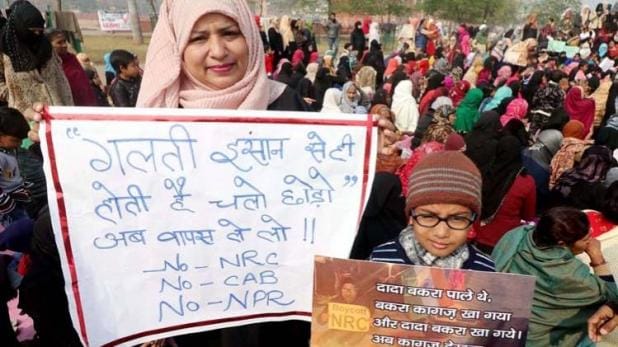 "गलती इंसान से ही
होती है चलो छोड़ो"
अब वापस ले लो !!
No - NRC
No - CAB
No - NPR
Boycott
NRC
दादा बकरा पाले थे,
बकरा कागज़ खा गया
और दादा बकरा खा गये।
अब कागज़